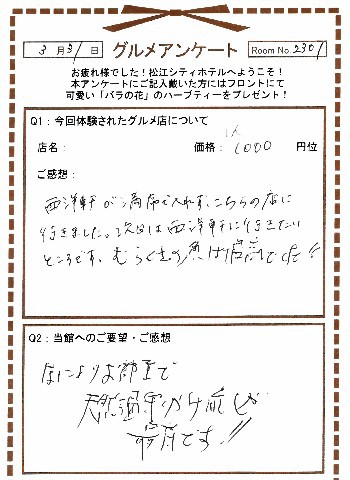 3月31日 グルメアンケート Room No. 2301
お疲れ様でした！松江シティホテルへようこそ！
本アンケートにご記入戴いた方にはフロントにて
可愛い「バラの花」のハーブティーをプレゼント！
Q1：今回体験されたグルメ店について
店名： 価格：1人1000 円位
ご感想：
西洋軒が満席で入れず、こちらの店に
行きました。次回は西洋軒に行きたい
ところです。 の魚は最高でした!!
Q2：当館へのご要望・ご感想
なによりお部屋で
天然温泉かけ流しが
最高です!!